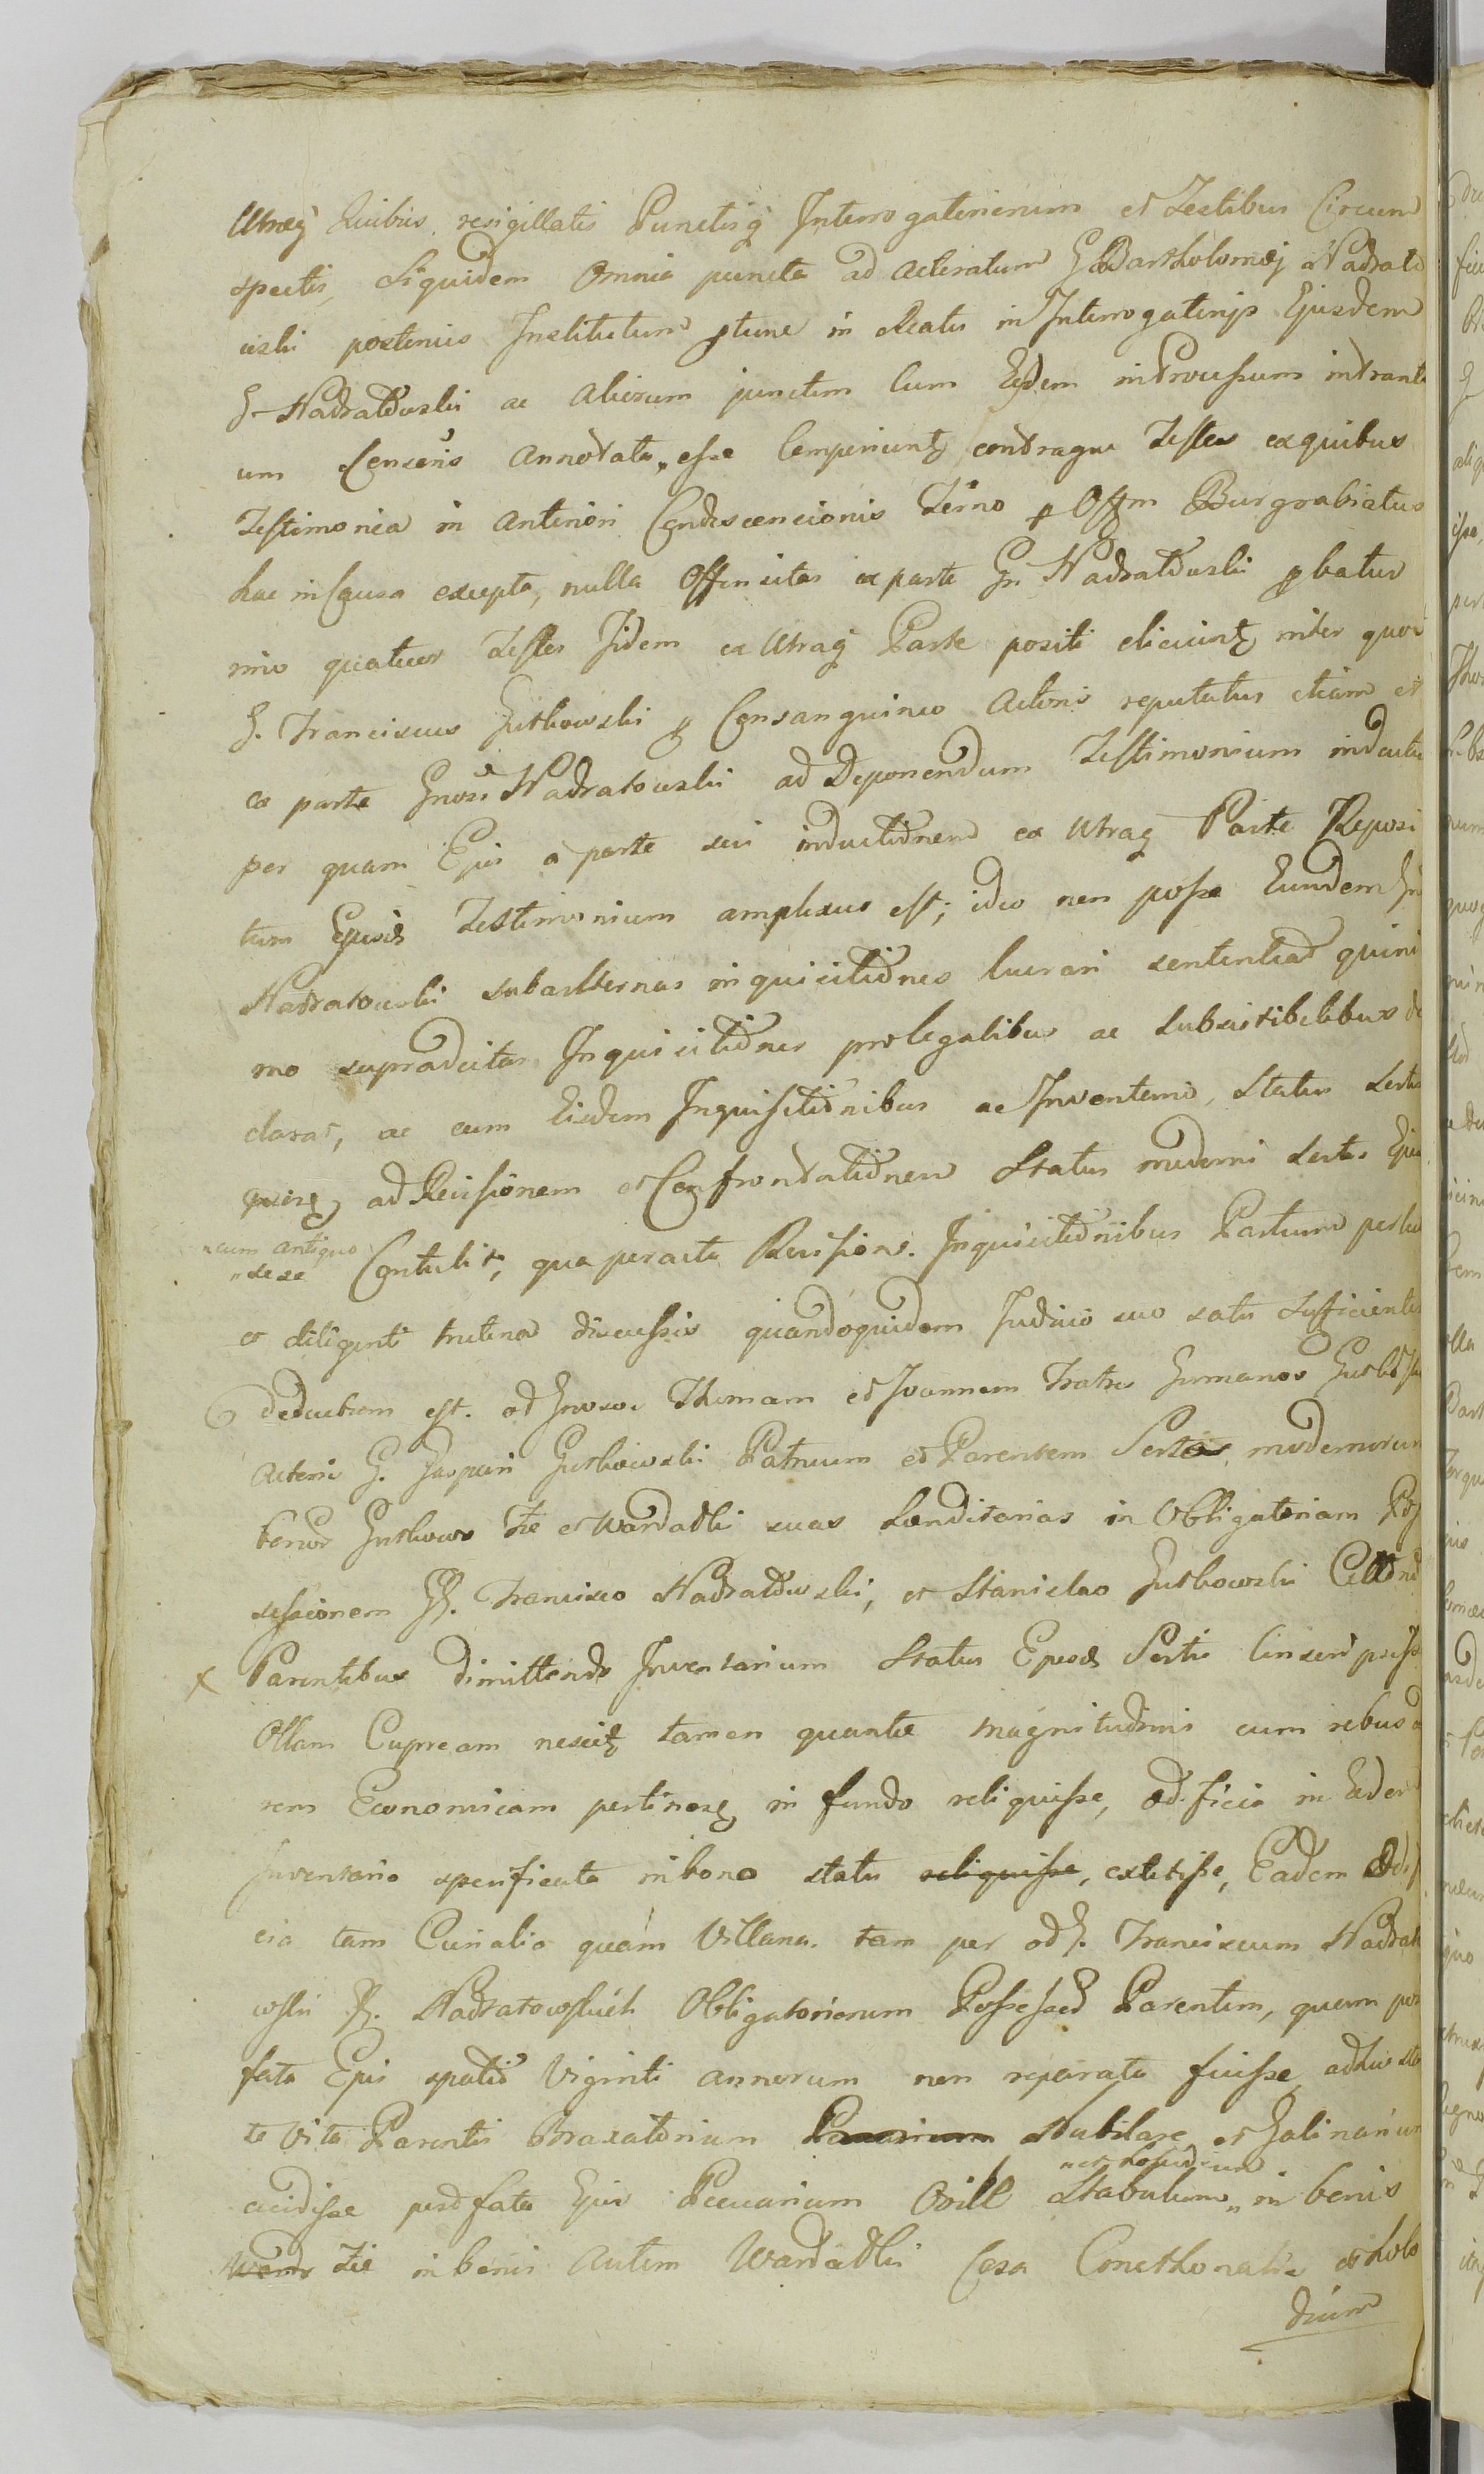 Utraq Quibus resigillatis Punctisq Interrogatoriorum et Testibus Circum
spectis, Siquidem Omnia puncta ad Actoratum G Bartholomæj Nadrato
wski posterius Institutum tunc in Reatu in Interrogatorijs Ejusdem
G. Nadratowski ac aliorum junctim Cum Eodem in Processum intranti
um Consoris Annotata esse Comperiunt contraque Testes ex quibus
Testimonia in Anteriori Condescencionis Termo p Offm Burgrabiatus
hac in Causa excepta, nulla Offensitas ex parte Gn Nadratowski pbatur
imo quatuor Testes Iidem ex Utraq Parte positi eliciunt inter quos
G. Franciscus Gutkowski p Consanguineo Actoris reputatus etiam et
ex parte Gnosi Nadratowski ad Deponendum Testimonium inductus
per quam Ejus a parte sui inductionem ex Utraq Parte Reposi
tum Ejusd Testimonium amplexus est; ideo non posse Eundem Gn
Nadratowski subalternas inquicitiones lucrari sententiad quini
mo supradictas Inquicitiones pro legalibus ac Subsistibilibus de
clarat, ac cum Eisdem Inquisitionibus ac Inventario, Status Sortis
ad Revisionem et Confrontationem Status moderni Sortis Ejus
"cum antiquo
"sese Contulit, qua peracta Revisione. Inquicitionibus Partium perlec
et diligenti trutina discussis quandoquidem Judicio suo satis Sufficienter
deductum est. od Gnosos Thomam et Joannem Fratres Germanos Gutkowskie
Actoris G. Gasparis Gutkowski Patruum et Parentem Sortes modernorum
bonor Gutkowo Tie et Wardatki suas hæreditarias in Obligatoriam Pos
sessionem GG. Francisco Nadratowski, et Stanislao Gutkowski
x Parentibus dimittendo Inventarium Status Ejusd Sortis
Ollam Cupream nescit tamen quantæ magnitudinis cum rebus a
rem Economicam pertinen in fundo reliquisse, ædificia in Eodem
Inventario specificata in bono statu reliquisse, extitisse, Eadem Ædif
cia tam Curialia quàm Villana. tam per od G. Franciscum Nadrato
wski G. Nadratowskich Obligatoriorum Possessod Parentem, quam post
fata Ejus spatio Viginti annorum non reparata fuisse adhuc sta
te Vita Parentis Braxatorium Pecuarium Stabilare et Galinarium
"et
cecidisse post fata Ejus Pecuarium Ovill Stabulum" in bonis
Wards Tie in bonis Autem Wardatki Casa Cmethonalis et holo
dium